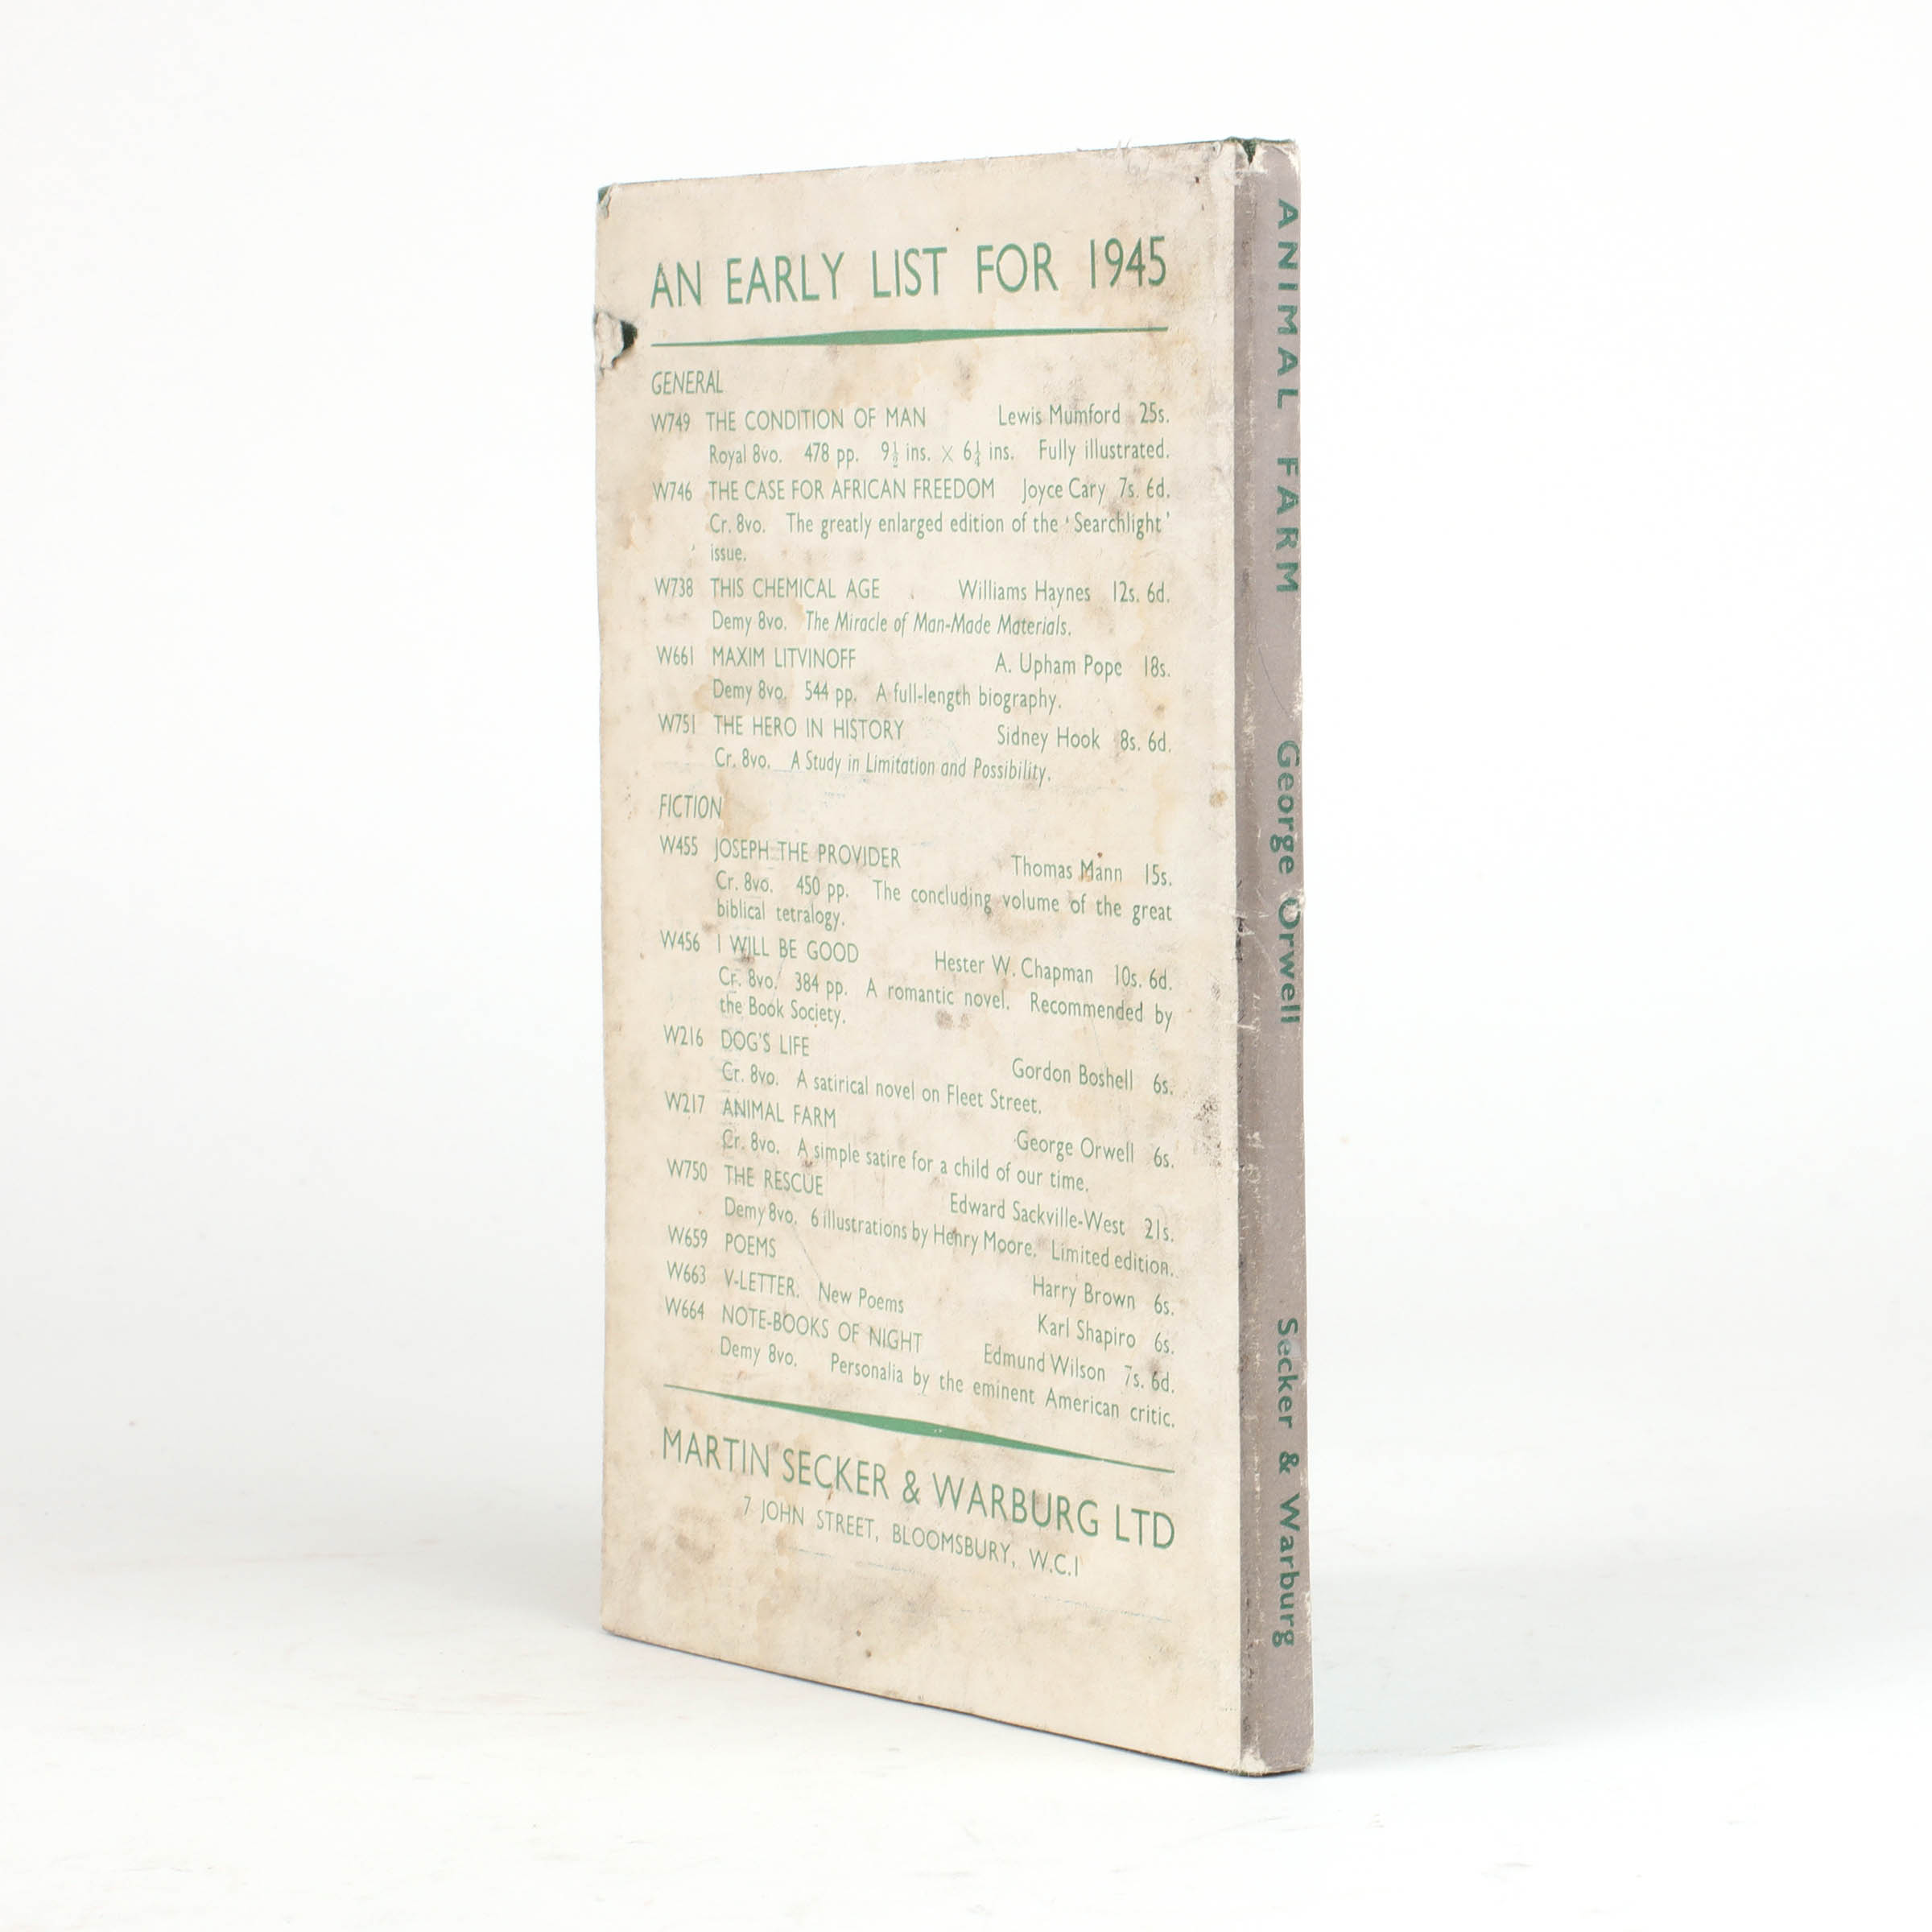 AN EARLY LIST FOR 1945
GENERAL
W749 THE CONDITION OF MAN Lewis Mumford 25s.
Royal 8vo. 478 pp. 9½ ins. × 6¼ ins. Fully illustrated.
W746 THE CASE FOR AFRICAN FREEDOM Joyce Cary 7s. 6d.
Cr. 8vo. The greatly enlarged edition of the ‘Searchlight’
issue.
W738 THIS CHEMICAL AGE Williams Haynes 12s. 6d.
Demy 8vo. The Miracle of Man-Made Materials.
W661 MAXIM LITVINOFF A. Upham Pope 18s.
Demy 8vo. 544 pp. A full-length biography.
W751 THE HERO IN HISTORY Sidney Hook 8s. 6d.
Cr. 8vo. A Study in Limitation and Possibility.
FICTION
W455 JOSEPH THE PROVIDER Thomas Mann 15s.
Cr. 8vo. 450 pp. The concluding volume of the great
biblical tetralogy.
W456 I WILL BE GOOD Hester W. Chapman 10s. 6d.
Cr. 8vo. 384 pp. A romantic novel. Recommended by
the Book Society.
W216 DOG'S LIFE Gordon Boshell 6s.
Cr. 8vo. A satirical novel on Fleet Street.
W217 ANIMAL FARM George Orwell 6s.
Cr. 8vo. A simple satire for a child of our time.
W750 THE RESCUE Edward Sackville-West 21s.
Demy 8vo. 6 illustrations by Henry Moore. Limited edition.
W659 POEMS Harry Brown 6s.
W663 V-LETTER. New Poems Karl Shapiro 6s.
W664 NOTE-BOOKS OF NIGHT Edmund Wilson 7s. 6d.
Demy 8vo. Personalia by the eminent American critic.
MARTIN SECKER & WARBURG LTD
7 JOHN STREET, BLOOMSBURY, W.C.1
ANIMAL FARM George Orwell Secker & Warburg